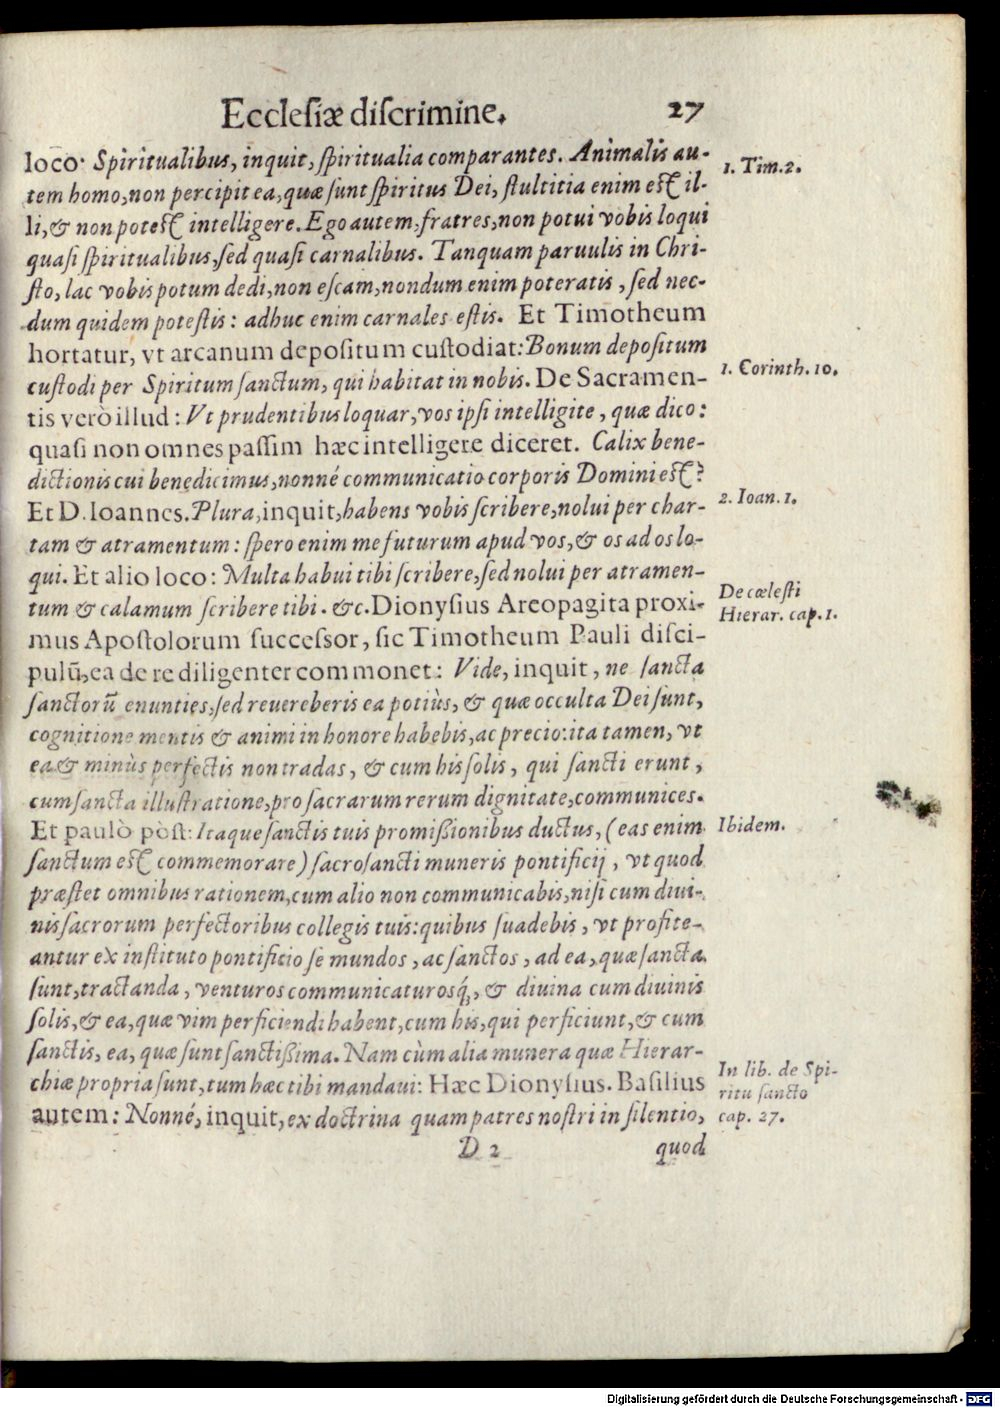 Ecclesiæ discrimine. 27
loco: Spiritualibus, inquit, spiritualia comparantes. Animalis au-
1. Tim. 2.
tem homo, non percipit ea, quæ sunt spiritus Dei, stultitia enim est il-
li, & non potest intelligere. Ego autem, fratres, non potui vobis loqui
quasi spiritualibus, sed quasi carnalibus. Tanquam paruulis in Chri-
sto, lac vobis potum dedi, non escam, nondum enim poteratis, sed nec-
dum quidem potestis: adhuc enim carnales estis. Et Timotheum
hortatur, vt arcanum depositum custodiat: Bonum depositum
1. Corinth. 10.
custodi per Spiritum sanctum, qui habitat in nobis. De Sacramen-
tis verò illud: Vt prudentibus loquar, vos ipsi intelligite, quæ dico:
quasi non omnes passim hæc intelligere diceret. Calix bene-
dictionis cui benedicimus, nonné communicatio corporis Domini est?
2. Ioan. 1.
Et D. Ioannes. Plura, inquit, habens vobis scribere, nolui per char-
tam & atramentum: spero enim me futurum apud vos, & os ad os lo-
qui. Et alio loco: Multa habui tibi scribere, sed nolui per atramen-
De cœlesti
tum & calamum scribere tibi. &c. Dionysius Areopagita proxi-
Hierar. cap. 1.
mus Apostolorum successor, sic Timotheum Pauli disci-
pulū, ea de re diligenter commonet: Vide, inquit, ne sancta
sanctorū enunties, sed reuereberis ea potiùs, & quæ occulta Dei sunt,
cognitione mentis & animi in honore habebis, ac precio: ita tamen, vt
ea & minùs perfectis non tradas, & cum his solis, qui sancti erunt,
cum sancta illustratione, pro sacrarum rerum dignitate, communices.
Et paulò pòst: Itaque sanctis tuis promißionibus ductus, (eas enim
Ibidem.
sanctum est commemorare) sacrosancti muneris pontificij, vt quod
præstet omnibus rationem, cum alio non communicabis, nisi cum diui-
nis sacrorum perfectoribus collegis tuis: quibus suadebis, vt profite-
antur ex instituto pontificio se mundos, ac sanctos, ad ea, quæ sancta
sunt, tractanda, venturos communicaturosq́;, & diuina cum diuinis
solis, & ea, quæ vim perficiendi habent, cum his, qui perficiunt, & cum
sanctis, ea, quæ sunt sanctißima. Nam cùm alia munera quæ Hierar-
In lib. de Spi-
chiæ propria sunt, tum hæc tibi mandaui: Hæc Dionysius. Basilius
ritu sancto
autem: Nonné, inquit, ex doctrina quam patres nostri in silentio,
cap. 27.
D 2 quod
Digitalisierung gefördert durch die Deutsche Forschungsgemeinschaft - DFG